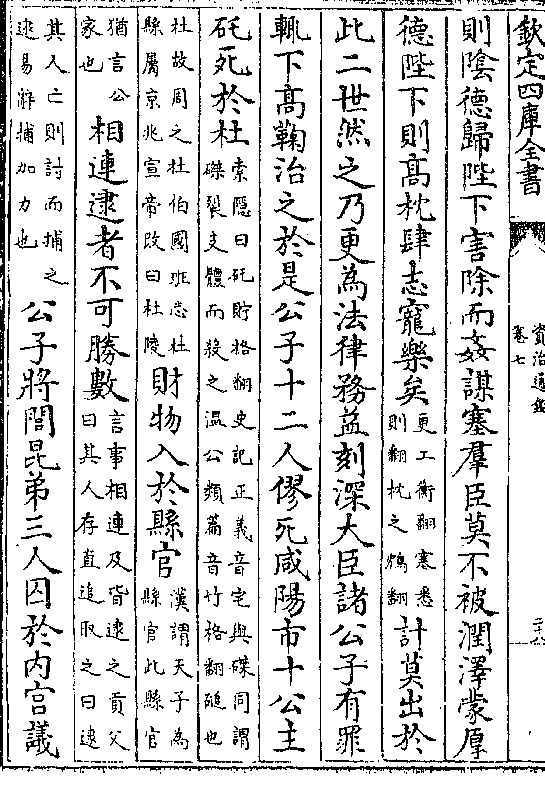 欽定四庫全書
資治通鑑
卷七
則陰德歸陛下害除而姦謀塞羣臣莫不被潤澤蒙厚
德陛下則髙枕肆志寵樂矣更工衡翻塞悉則翻枕之鴆翻計莫出於
此二世然之乃更為法律務益刻深大臣諸公子有罪
輒下髙鞠治之於是公子十二人僇死咸陽市十公主
矺死於杜索隱曰矺貯格翻史記正義音宅與磔同謂磔裂支體而殺之温公類篇音竹格翻磓也
杜故周之杜伯國班志杜縣屬京兆宣帝改曰杜陵財物入於縣官漢謂天子為縣官此縣官
猶言公家也相連逮者不可勝數言事相連及皆逮之貢父曰其人存直追取之曰逮
其人亡則討而捕之逮易辭捕加力也公子將閭昆弟三人囚於内宫議